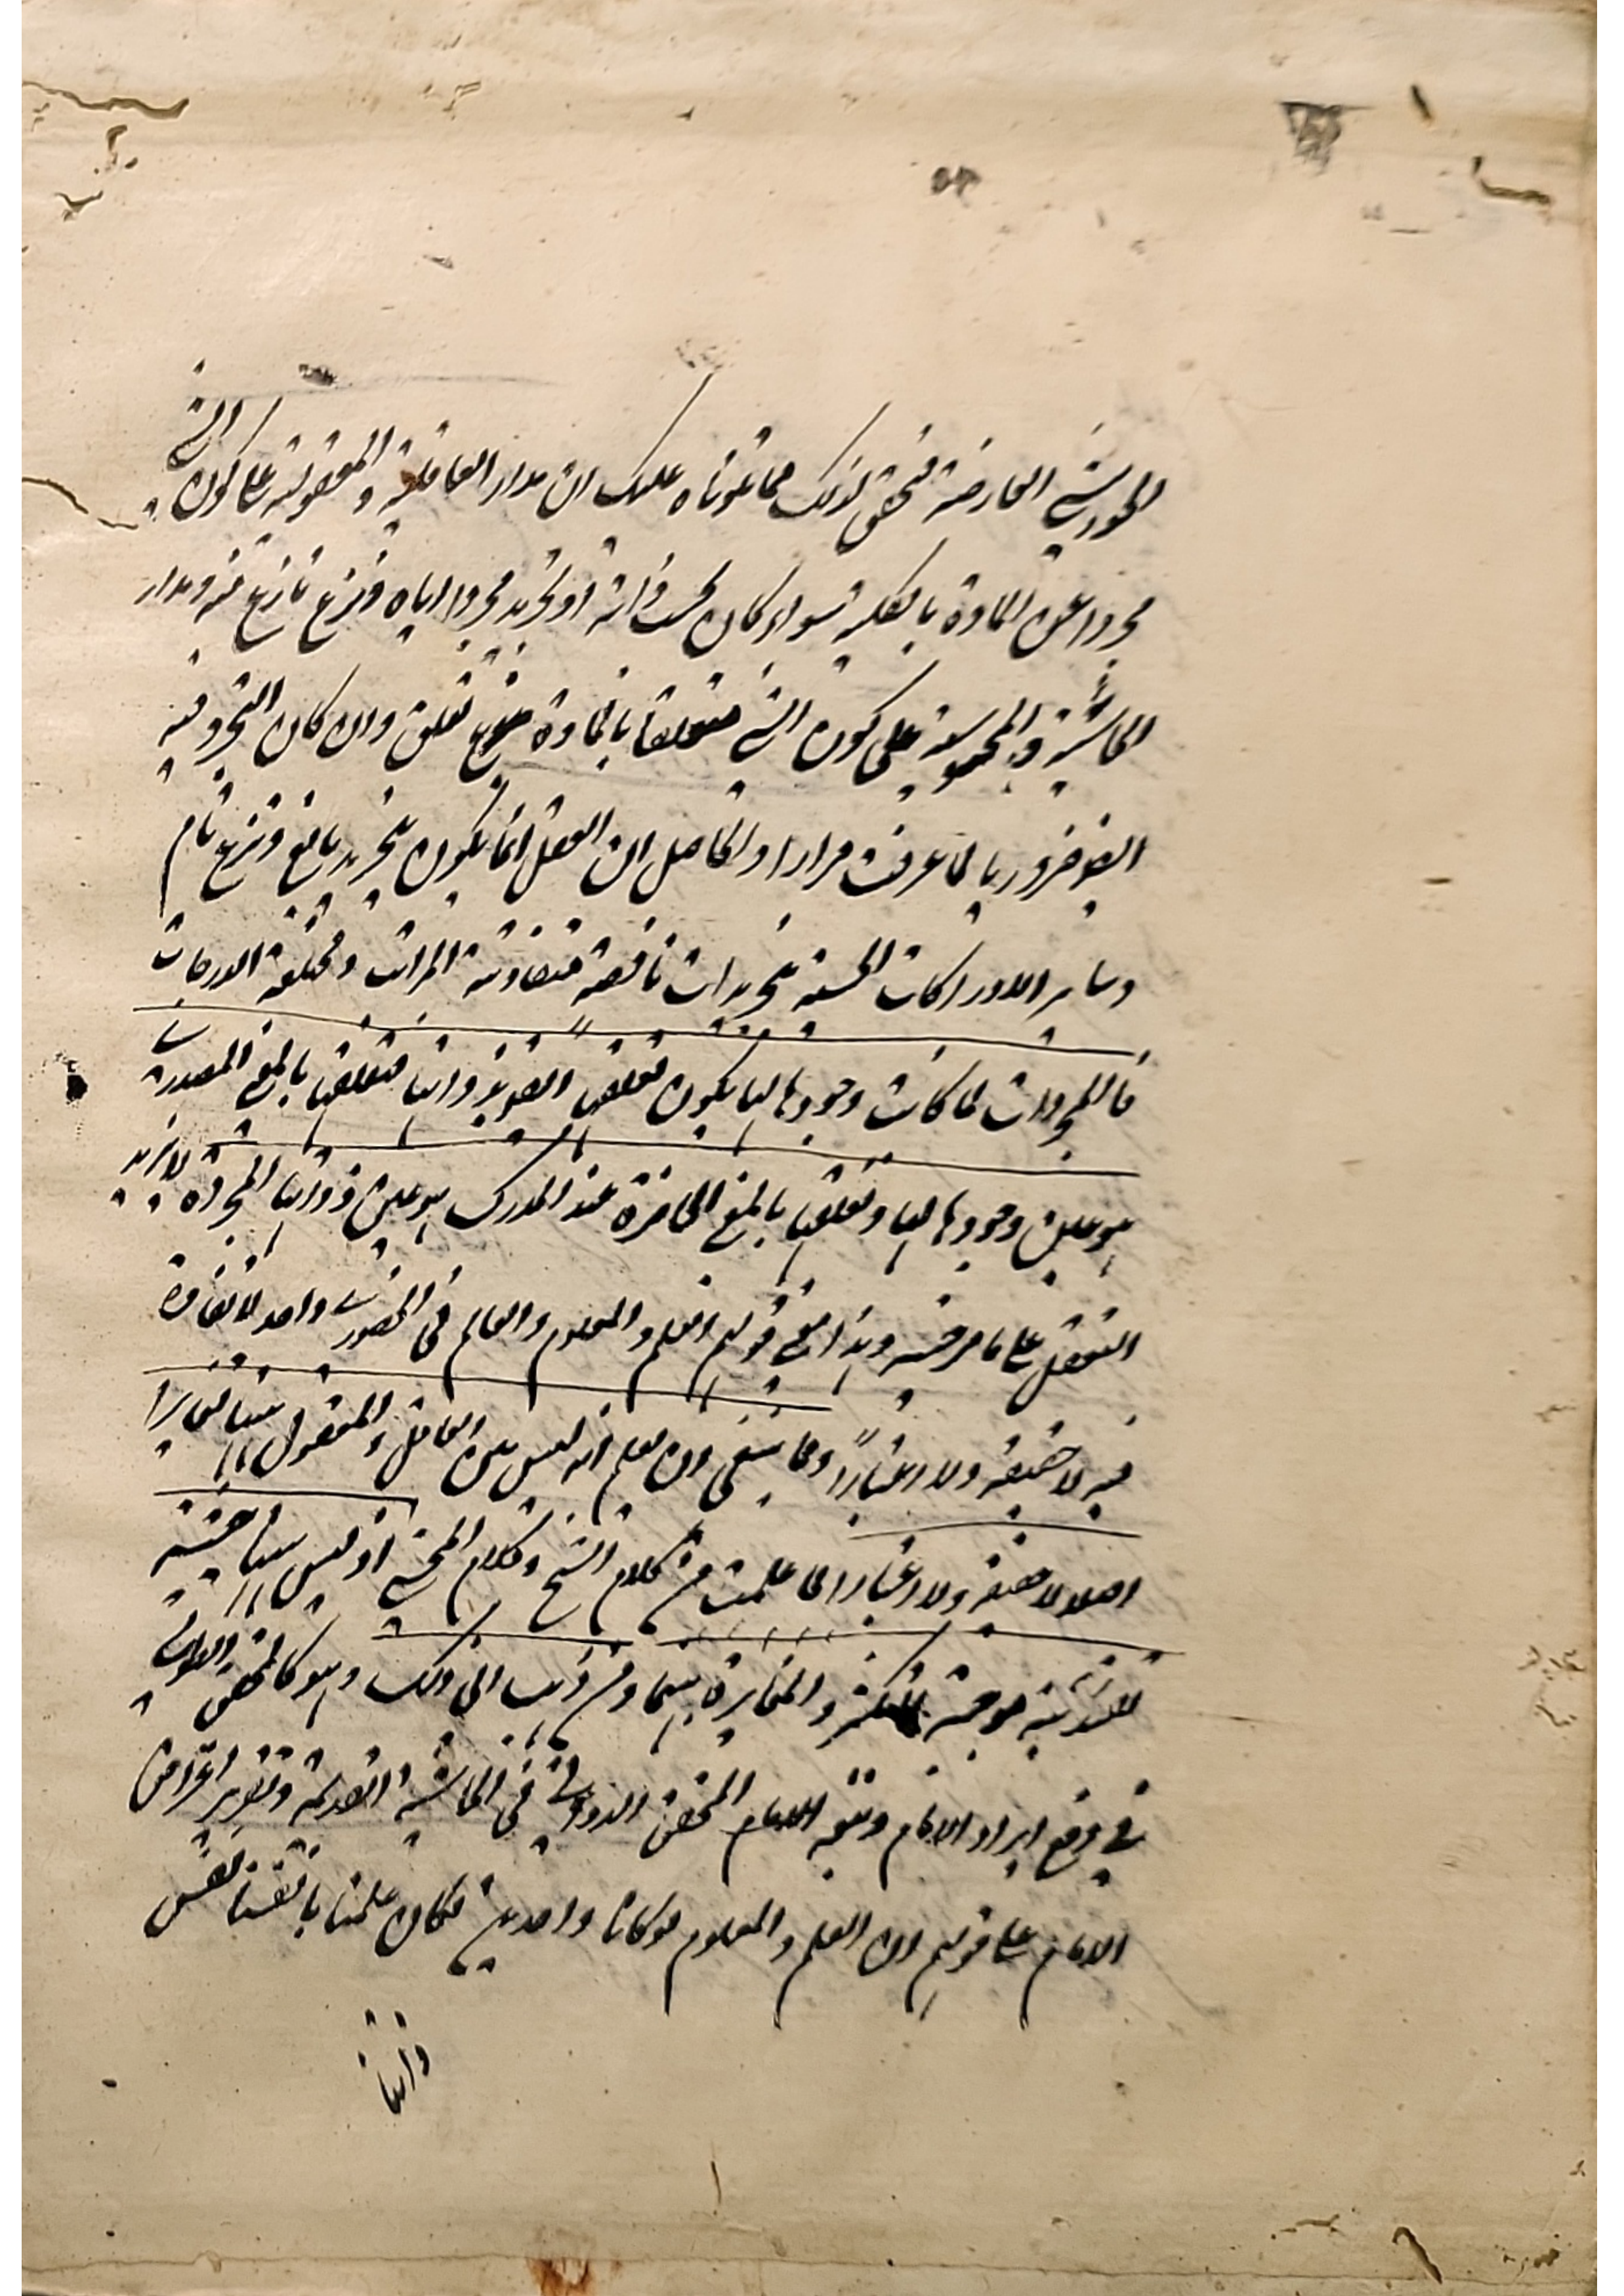 العارضة فتحقق لذلك مما تلوناه عليك ان مدار العاقلية والمعقولية على كون الشئ
مجردا عن المادة بالكلية سواء كان بحسب ذاته او بتجريد مجرد اياه ونزع نازع منه ومدار
الحاسية والمحسوسية على كون الشئ متعلقا بالمادة نوع تعلق وان كان التجرد فيه
ايضا ضروريا لما عرفت مرارا والحاصل ان التعقل انما يكون بتجريد بالغ ونزع تام
وساير الادراكات الحسية بتجريدات ناقصة متفاوتة المراتب ومختلفة الدرجات
فالمجردات لما كانت وجودها لها يكون تعقلها لذواتها متعلقها بالمعنى المصدرى
هو عين وجودها لها وتعقلها بالمعنى الحاضرة عند المدرك هو عين ذواتها المجردة لا يزيد
التعقل على ما مر فيه وهذا معنى قولهم العلم والمعلوم والعالم فى الحضورى واحد لا تغاير
فيه لا حقيقة ولا اعتباراً ومما ينبغى ان يعلم انه ليس بين العاقل والمعقول ههنا تغاير
اصلا لا حقيقة ولا اعتبارا لما علمت من كلام الشيخ وكلام المحشى اذ ليس ههنا حيثية
تقييدية موجبة للتكثر والمغايرة بينهما ومن ذهب الى ذلك وهو كالمحقق الطوسى
فى دفع ايراد الامام وتبعه المحقق الدوانى فى الحاشية القديمة وتقرير اعتراض
الامام على قولهم ان العلم والمعلوم لو كانا واحدين لكان علمنا بانفسنا نفس
ذاتنا